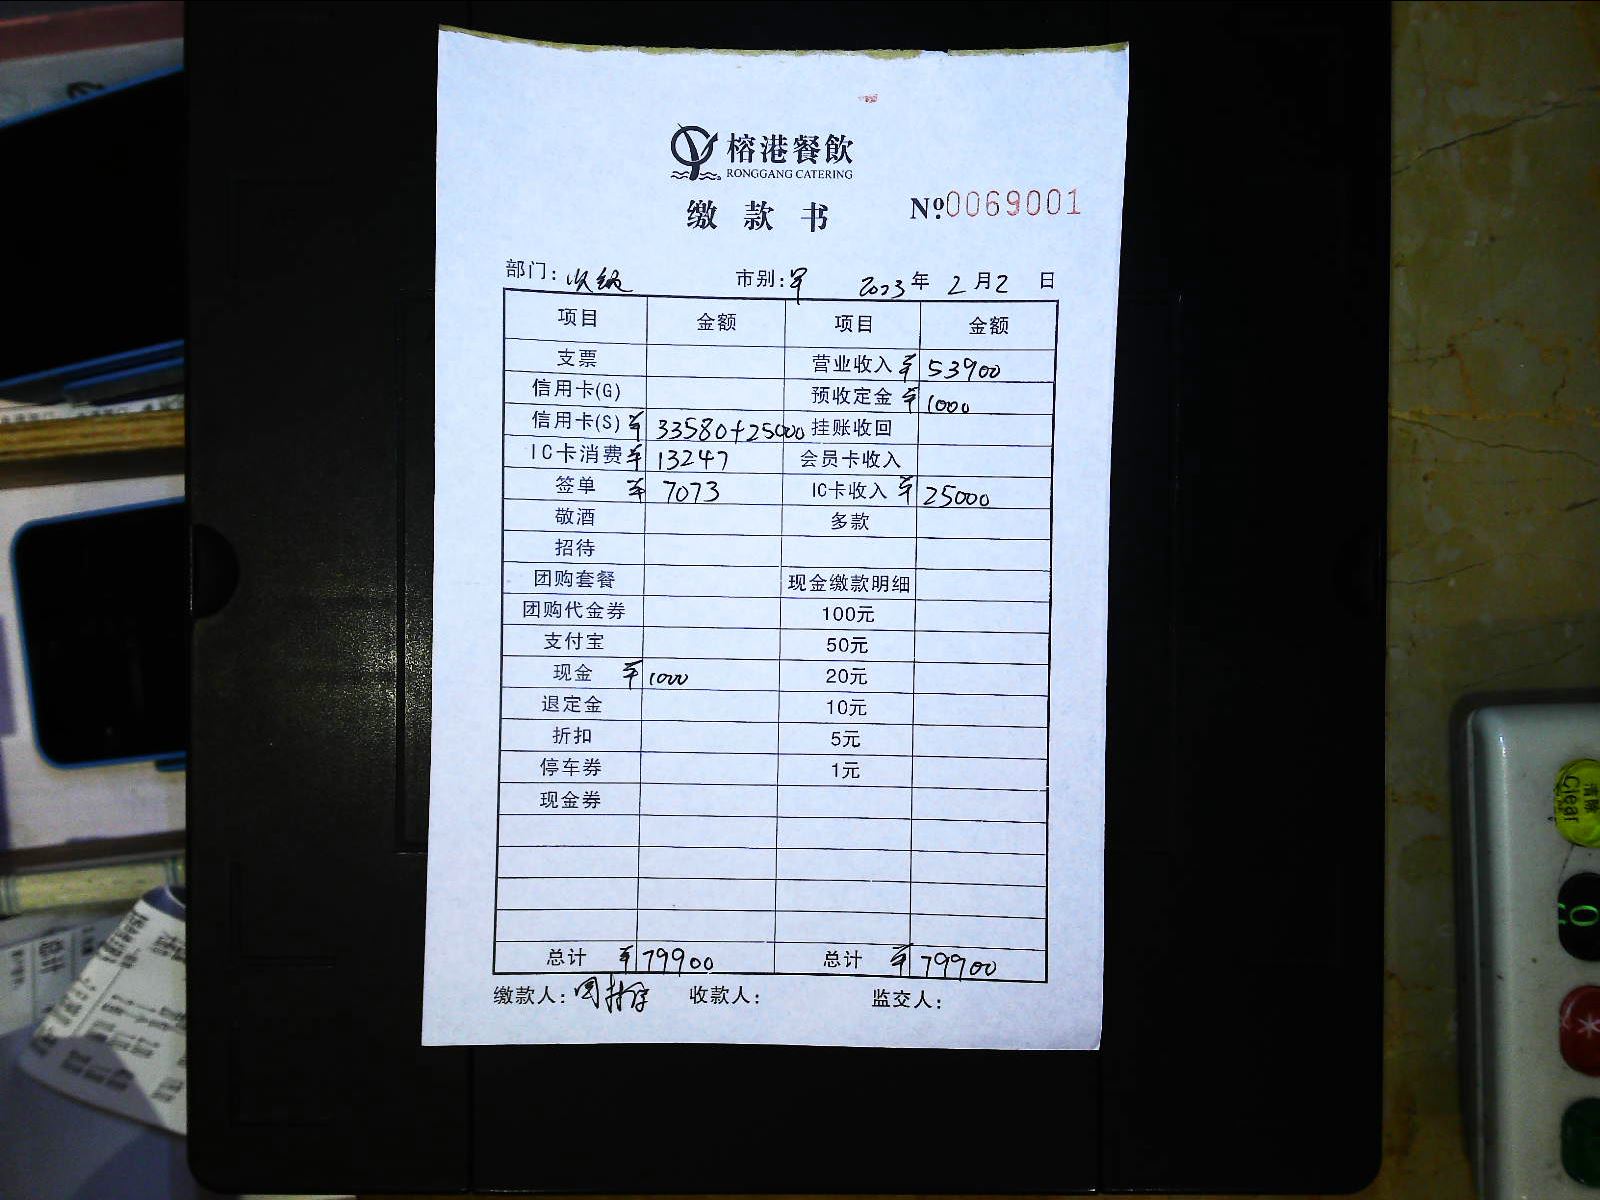 榕港餐飲
RONGGANG CATERING
缴款书 Nº:0069001
部门: 收银 市别: 早 2023年2月2日
项目 金额 项目 金额
支票 营业收入 ¥53900
信用卡(G) 预收定金 ¥1000
信用卡(S) ¥33580+25000 挂账收回
IC卡消费 ¥13247 会员卡收入
签单 ¥7073 IC卡收入 ¥25000
敬酒 多款
招待
团购套餐 现金缴款明细
团购代金券 100元
支付宝 50元
现金 ¥1000 20元
退定金 10元
折扣 5元
停车券 1元
现金券
总计 ¥79900 总计 ¥79900
缴款人: 收款人: 监交人:
清除
Clear
0
*